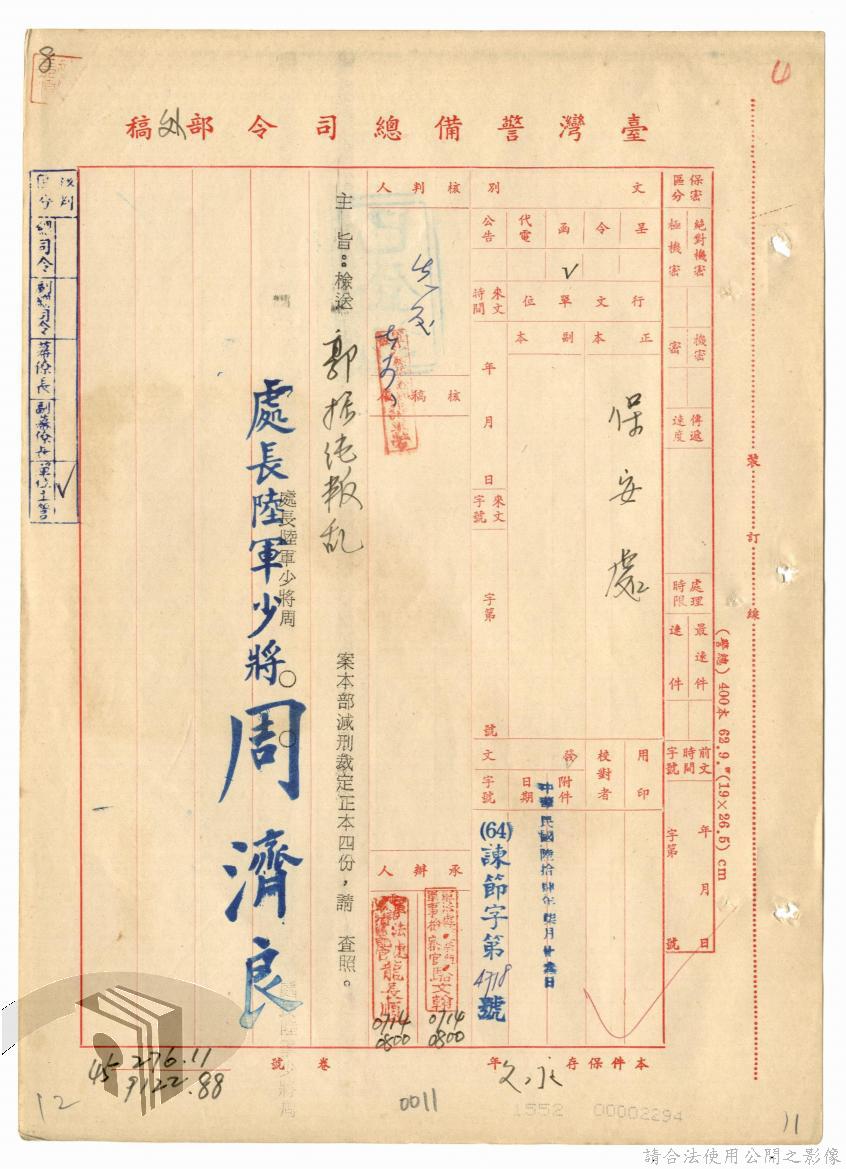 8
4
臺灣警備總司令部外稿
保密區分
絕對機密
極機密
機密
密
傳遞速度
處理時限
最速件
速件
前文時間字號
年月日
字第號
文別
呈
令
函
代電
公告
✓
行文單位
正本
副本
保安處
來文時間
年月日
來文字號
字第號
用印
校對者
發文
附件
日期
字號
中華民國陸拾肆年柒月
(64)諫節字第4718號
核判人
核稿人
承辦人
0714
0800
0714
0800
主旨:檢送郭振純叛乱案本部減刑裁定正本四份,請查照。
處長陸軍少將周○○
處長陸軍少將周濟良
總司令
副總司令
幕僚長
副幕僚長
✓
裝訂線
(警總) 400本 62.9.〃(19×26.5) cm
本件保存年
卷號
45
276.11
9122.88
12
0011
1552 00002294
11
請合法使用公開之影像